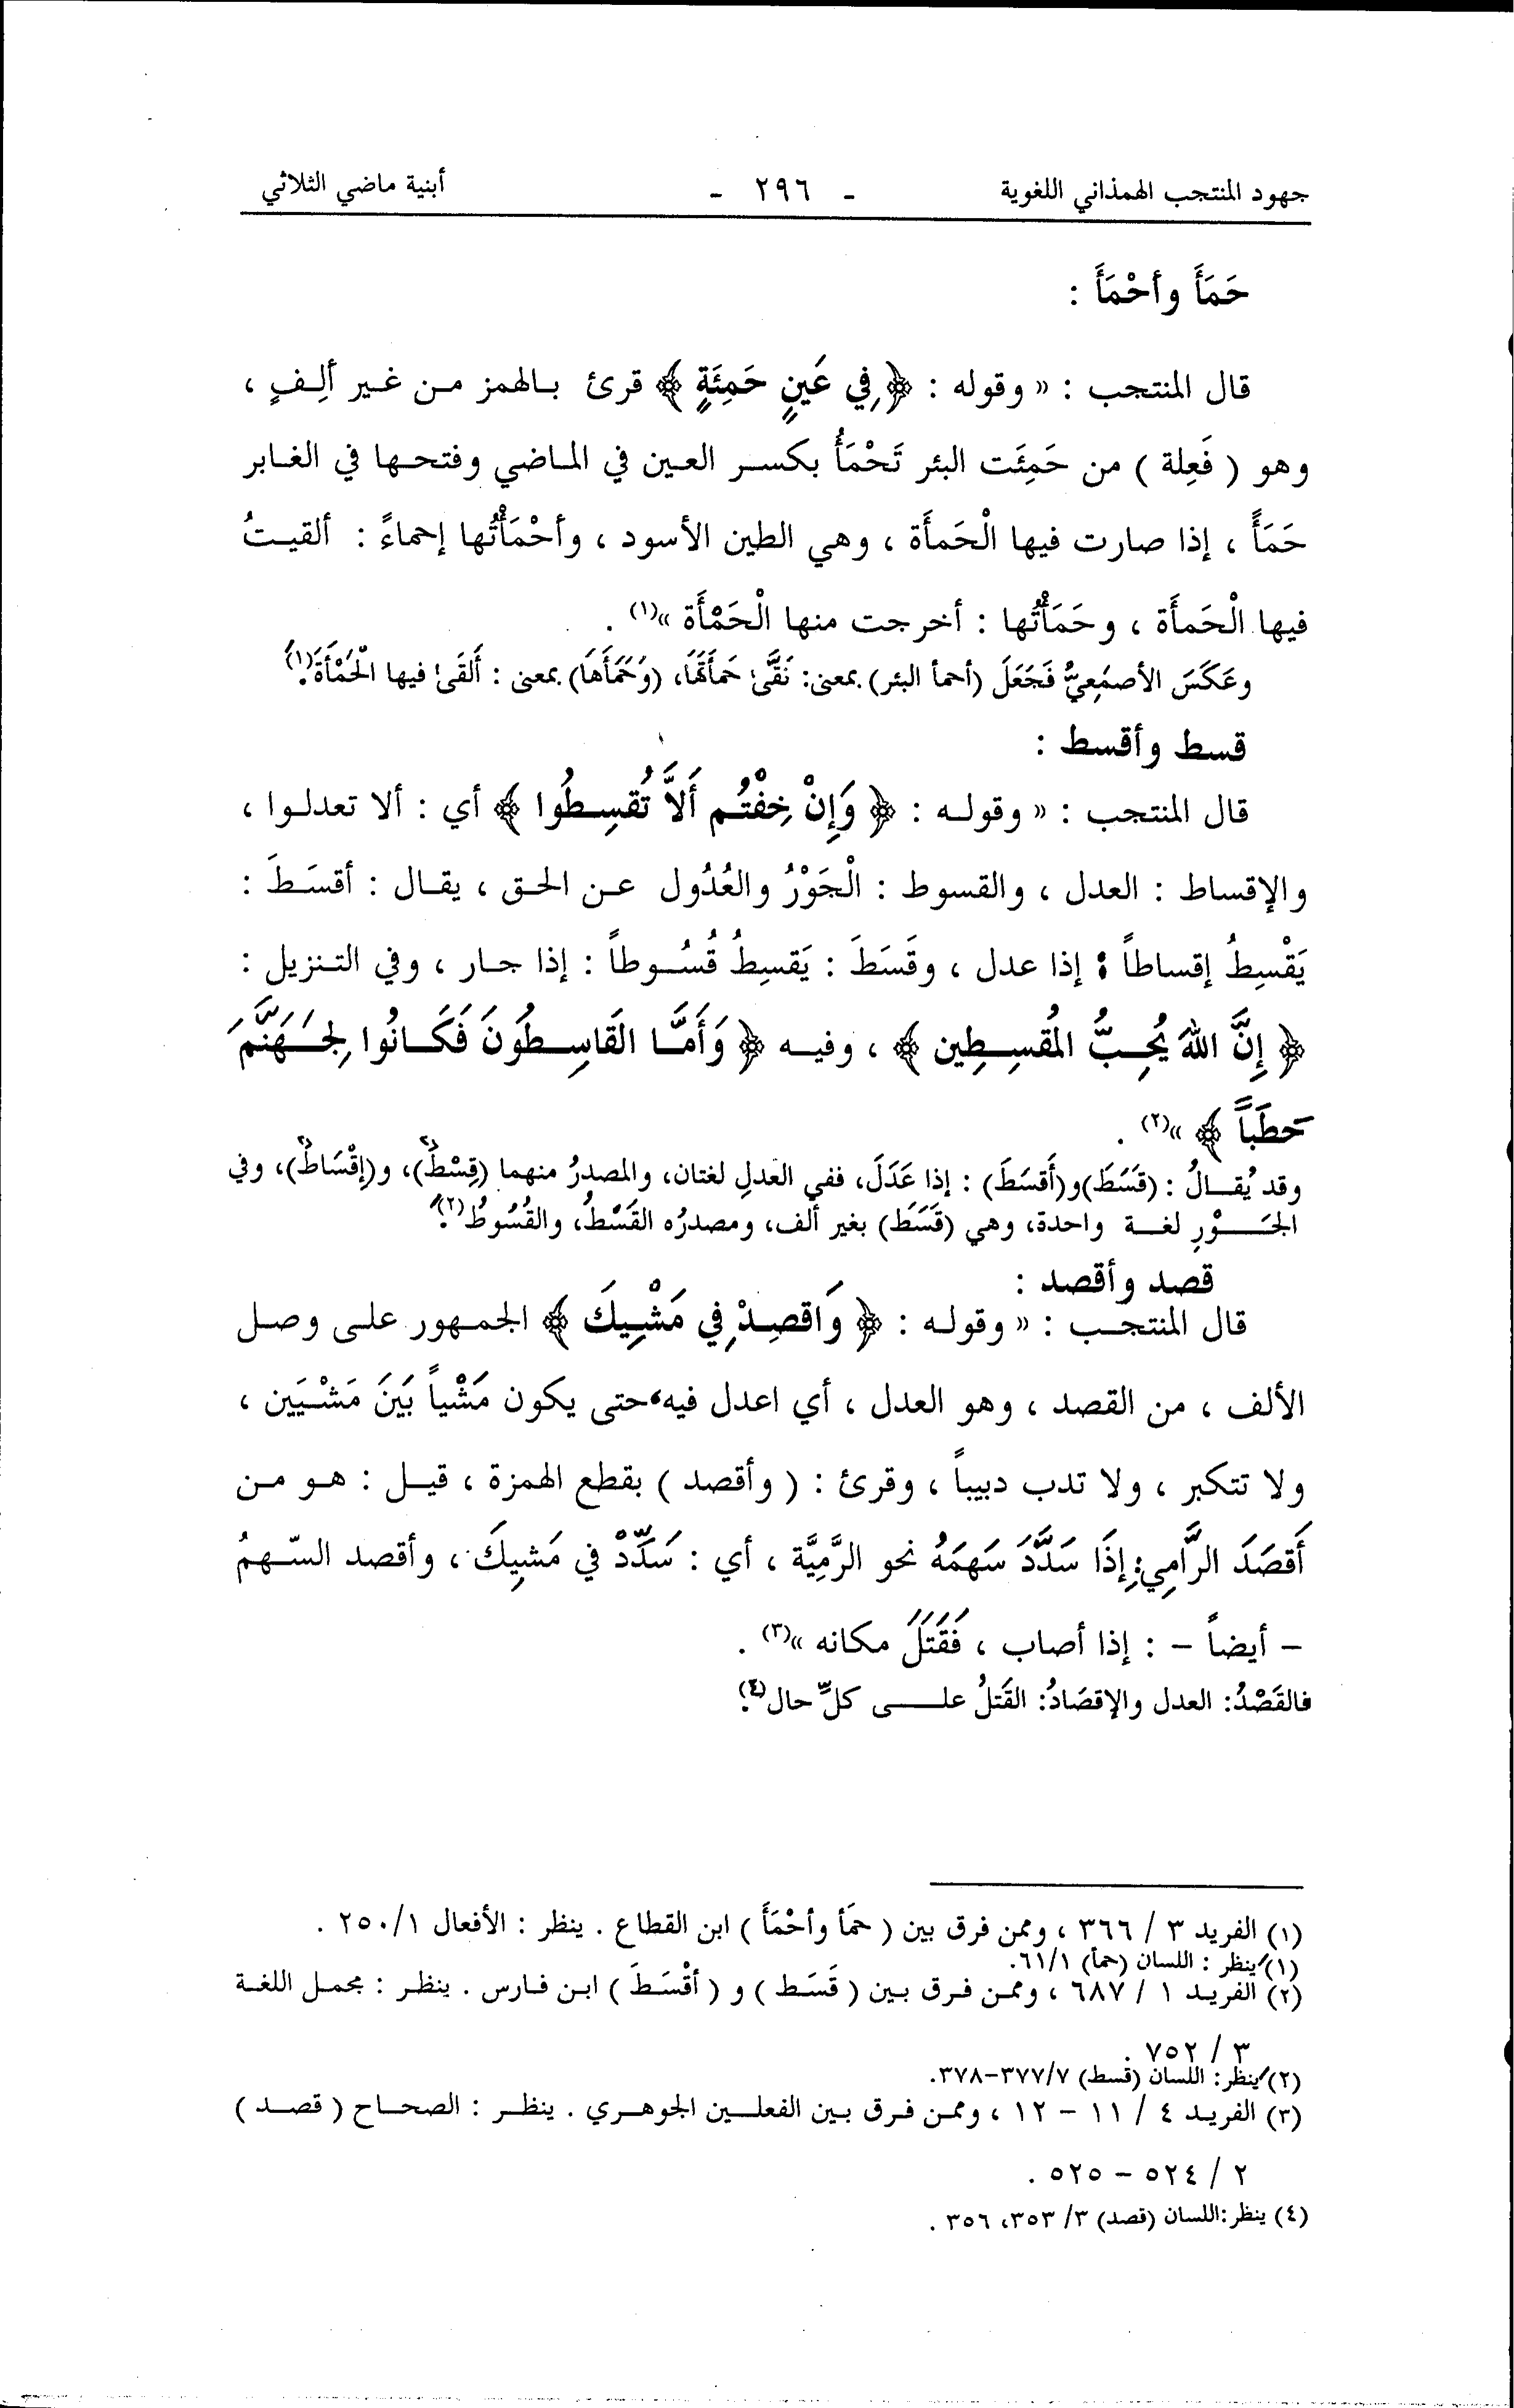 جهود المنتجب الهمذاني اللغوية - ٢٩٦ - أبنية ماضي الثلاثي
حَمَأَ وأحْمَأَ :
قال المنتجب : « وقوله : ﴿ فِي عَينٍ حَمِئَةٍ ﴾ قرئ بالهمز من غير ألِفٍ ،
وهو ( فَعِلة ) من حَمِئَت البئر تَحْمَأُ بكسر العين في الماضي وفتحها في الغابر
حَمَأً ، إذا صارت فيها الْحَمأَة ، وهي الطين الأسود ، وأحْمَأْتُها إحماءً : ألقيتُ
فيها الْحَمأَة ، وحَمَأْتُها : أخرجت منها الْحَمْأَة »(١) .
وعَكَسَ الأصمَعِيُّ فَجَعَلَ (أحمأ البئر) بمعنى: نَقَّى حَمأَتَهَا، (وَحَمَأَهَا) بمعنى : أَلقَى فيها الْحَمْأَةَ(١)َ.
قسط وأقسط :
قال المنتجب : « وقوله : ﴿ وَإِنْ خِفْتُم أَلاَّ تُقسِطُوا ﴾ أي : ألا تعدلوا ،
والإقساط : العدل ، والقسوط : الْجَوْرُ والعُدُول عن الحق ، يقال : أقسَطَ :
يَقْسِطُ إقساطاً : إذا عدل ، وقَسَطَ : يَقسِطُ قُسُوطاً : إذا جار ، وفي التنزيل :
﴿ إِنَّ اللهَ يُحِبُّ المُقسِطِين ﴾ ، وفيه ﴿ وَأَمَّا القَاسِطُونَ فَكَانُوا لِجَهَنَّمَ
حَطَباً ﴾ »(٢) .
وقد يُقالُ : (قَسَطَ)و(أَقسَطَ) : إذا عَدَلَ، ففي العدلِ لغتان، والمصدرُ منهما (قِسْطٌ)، و(إِقْسَاطٌ)، وفي
الجَوْرِ لغة واحدة، وهي (قَسَطَ) بغير ألف، ومصدرُه القَسْطُ، والقُسُوطُ(٢)َ.
قصد وأقصد :
قال المنتجب : « وقوله : ﴿ وَاقصِدْ فِي مَشْيِكَ ﴾ الجمهور على وصل
الألف ، من القصد ، وهو العدل ، أي اعدل فيه حتى يكون مَشْياً بَينَ مَشْيَين ،
ولا تتكبر ، ولا تدب دبيباً ، وقرئ : ( وأقصد ) بقطع الهمزة ، قيل : هو من
أَقصَدَ الرَّامِي: إِذَا سَدَّدَ سَهمَهُ نحو الرَّمِيَّة ، أي : سَدِّدْ في مَشيِكَ ، وأقصد السّهمُ
– أيضاً – : إذا أصاب ، فَقَتَلَ مكانه »(٣) .
فالقَصْدُ: العدل والإقصَادُ: القَتلُ على كلِّ حال(٤).
(١) الفريد ٣ / ٣٦٦ ، وممن فرق بين ( حَمَأ وأحْمَأَ ) ابن القطاع . ينظر : الأفعال ١/٢٥٠ .
(١)َ ينظر : اللسان (حمأ) ١/٦١.
(٢) الفريد ١ / ٦٨٧ ، وممن فرق بين ( قَسَط ) و ( أقْسَطَ ) ابن فارس . ينظر : مجمل اللغة
٣ / ٧٥٢ .
(٢)َ ينظر: اللسان (قسط) ٧/٣٧٧-٣٧٨.
(٣) الفريد ٤ / ١١ – ١٢ ، وممن فرق بين الفعلين الجوهري . ينظر : الصحاح ( قصد )
٢ / ٥٢٤ – ٥٢٥ .
(٤) ينظر:اللسان (قصد) ٣/ ٣٥٣، ٣٥٦ .